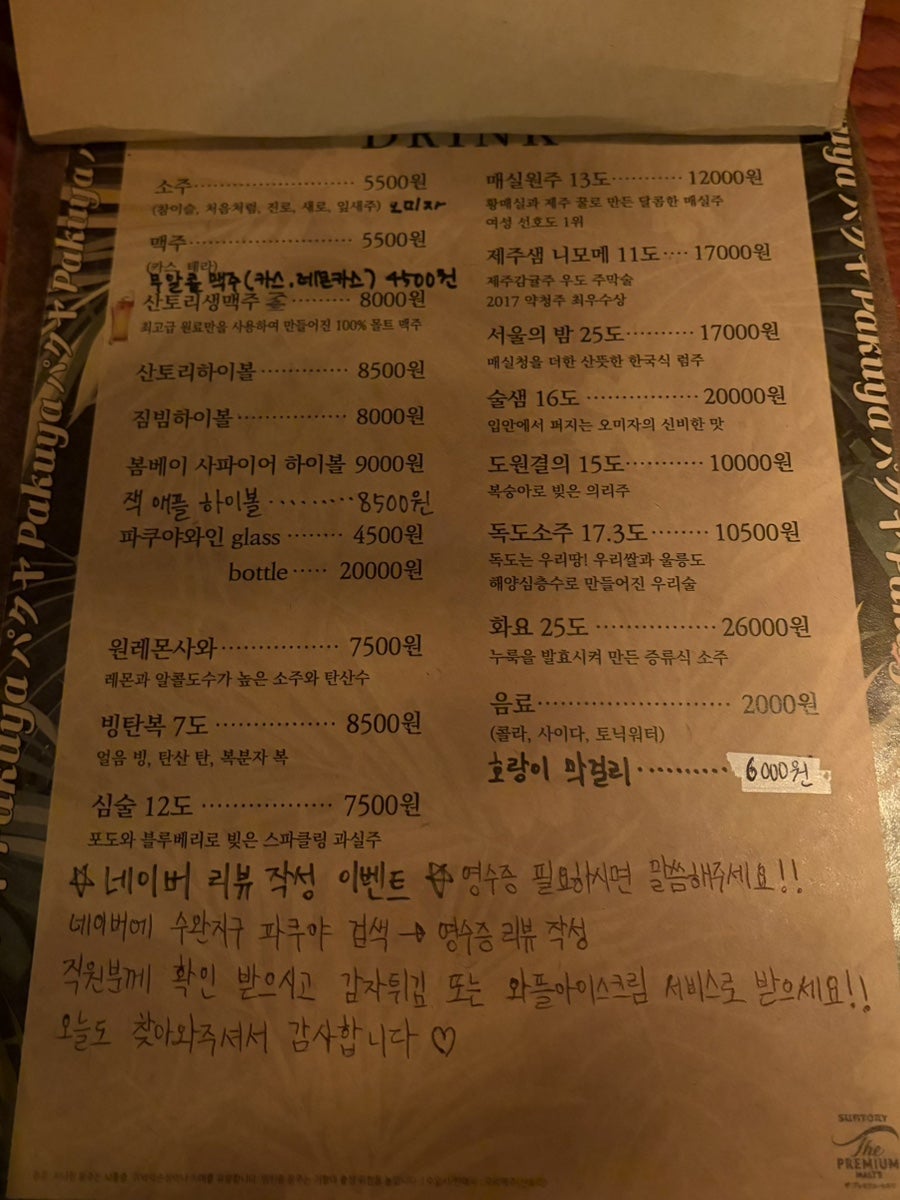 DRINK
소주 5500원
(참이슬, 처음처럼, 진로, 새로, 잎새주) 오미자
맥주 5500원
(카스, 테라)
무알콜 맥주(카스, 레몬카스) 4500원
산토리생맥주 8000원
최고급 원료만을 사용하여 만들어진 100% 몰트 맥주
산토리하이볼 8500원
짐빔하이볼 8000원
봄베이 사파이어 하이볼 9000원
잭 애플 하이볼 8500원
파쿠야와인 glass 4500원
bottle 20000원
원레몬사와 7500원
레몬과 알콜도수가 높은 소주와 탄산수
빙탄복 7도 8500원
얼음 빙, 탄산 탄, 복분자 복
심술 12도 7500원
포도와 블루베리로 빚은 스파클링 과실주
매실원주 13도 12000원
황매실과 제주 꿀로 만든 달콤한 매실주
여성 선호도 1위
제주샘 니모메 11도 17000원
제주감귤주 우도 주막술
2017 약청주 최우수상
서울의 밤 25도 17000원
매실청을 더한 산뜻한 한국식 럼주
술샘 16도 20000원
입안에서 퍼지는 오미자의 신비한 맛
도원결의 15도 10000원
복숭아로 빚은 의리주
독도소주 17.3도 10500원
독도는 우리땅! 우리쌀과 울릉도
해양심층수로 만들어진 우리술
화요 25도 26000원
누룩을 발효시켜 만든 증류식 소주
음료 2000원
(콜라, 사이다, 토닉워터)
호랑이 막걸리 6000원
☆ 네이버 리뷰 작성 이벤트 ☆ 영수증 필요하시면 말씀해주세요!!
네이버에 수완지구 파쿠야 검색 → 영수증 리뷰 작성
직원분께 확인 받으시고 감자튀김 또는 와플아이스크림 서비스로 받으세요!!
오늘도 찾아와주셔서 감사합니다 ♡
Pakuya パクヤ Pakuya パクヤ Pakuya
Pakuya パクヤ Pakuya パクヤ
SUNTORY
The
PREMIUM
MALT'S